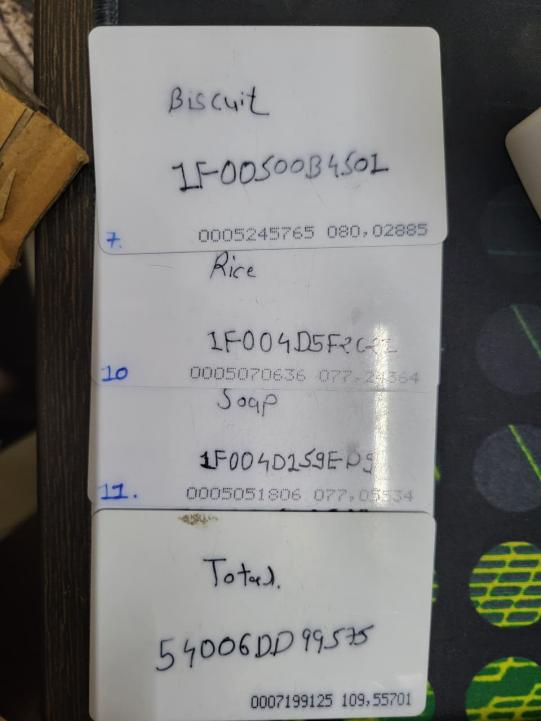 Biscuit
1F00500B4501
7. 0005245765 080,02885
Rice
1F004D5F2C21
10 0005070636 077,24364
Soap
1F004D159ED9
11. 0005051806 077,05534
Total.
54006DD99575
0007199125 109,55701